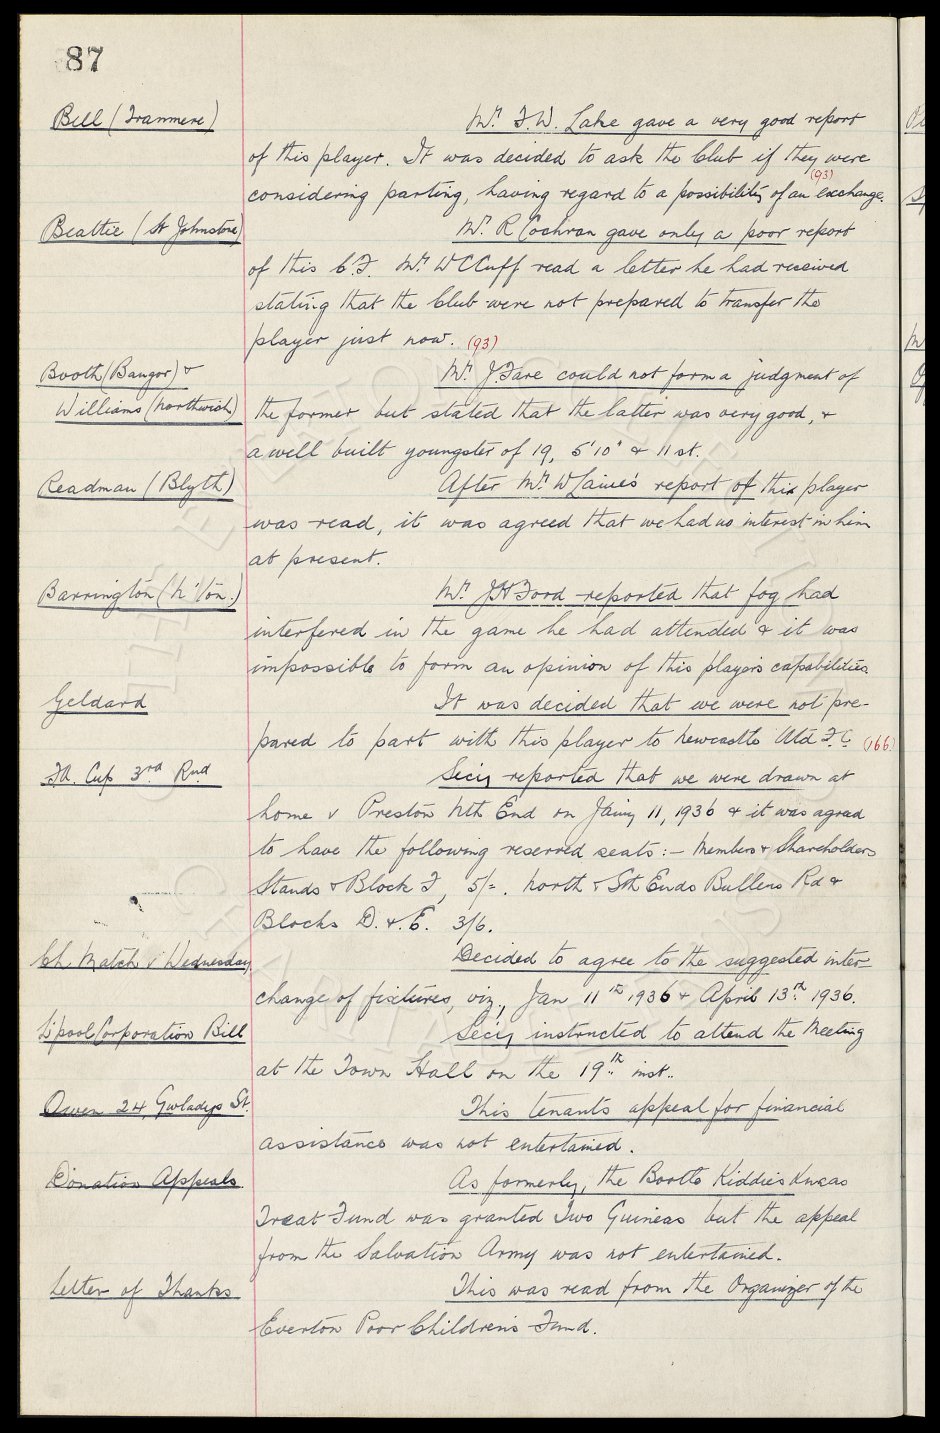 87
Bell (Tranmere) Mr. F.W. Lake gave a very good report
of this player. It was decided to ask the Club if they were
(93)
considering parting, having regard to a possibility of an exchange.
Beattie (St Johnstone) Mr. R Cochran gave only a poor report
of this C.F. Mr. W C Cuff read a letter he had received
stating that the Club were not prepared to transfer the
player just now. (93)
Booth (Bangor) & Mr. J Fare could not form a judgment of
Williams (Northwich) the former but stated that the latter was very good, &
a well built youngster of 19, 5'10" & 11 st.
Readman (Blyth) After Mr. W Laine's report of this player
was read, it was agreed that we had no interest in him
at present.
Barrington (N'ton.) Mr. J H Ford reported that fog had
interfered in the game he had attended & it was
impossible to form an opinion of this player's capabilities.
Geldard It was decided that we were not pre-
pared to part with this player to Newcastle Utd F.C. (166)
F.A. Cup 3rd Rnd Secy reported that we were drawn at
home v Preston Nth End on Jany 11, 1936 & it was agreed
to have the following reserved seats:- Members & Shareholders
Stands & Block F, 5/=. North & Sth Ends Bullens Rd &
Blocks D. & E. 3/6.
Ch Match v Wednesday Decided to agree to the suggested inter-
change of fixtures, viz., Jan 11th 1936 & April 13th 1936.
L'pool Corporation Bill Secy instructed to attend the Meeting
at the Town Hall on the 19th inst.
Owen 24, Gwladys St. This tenants appeal for financial
assistance was not entertained.
Donation Appeals As formerly, the Bootle Kiddies Xmas
Treat Fund was granted Two Guineas but the appeal
from the Salvation Army was not entertained.
Letter of Thanks This was read from the Organizer of the
Everton Poor Children's Fund.